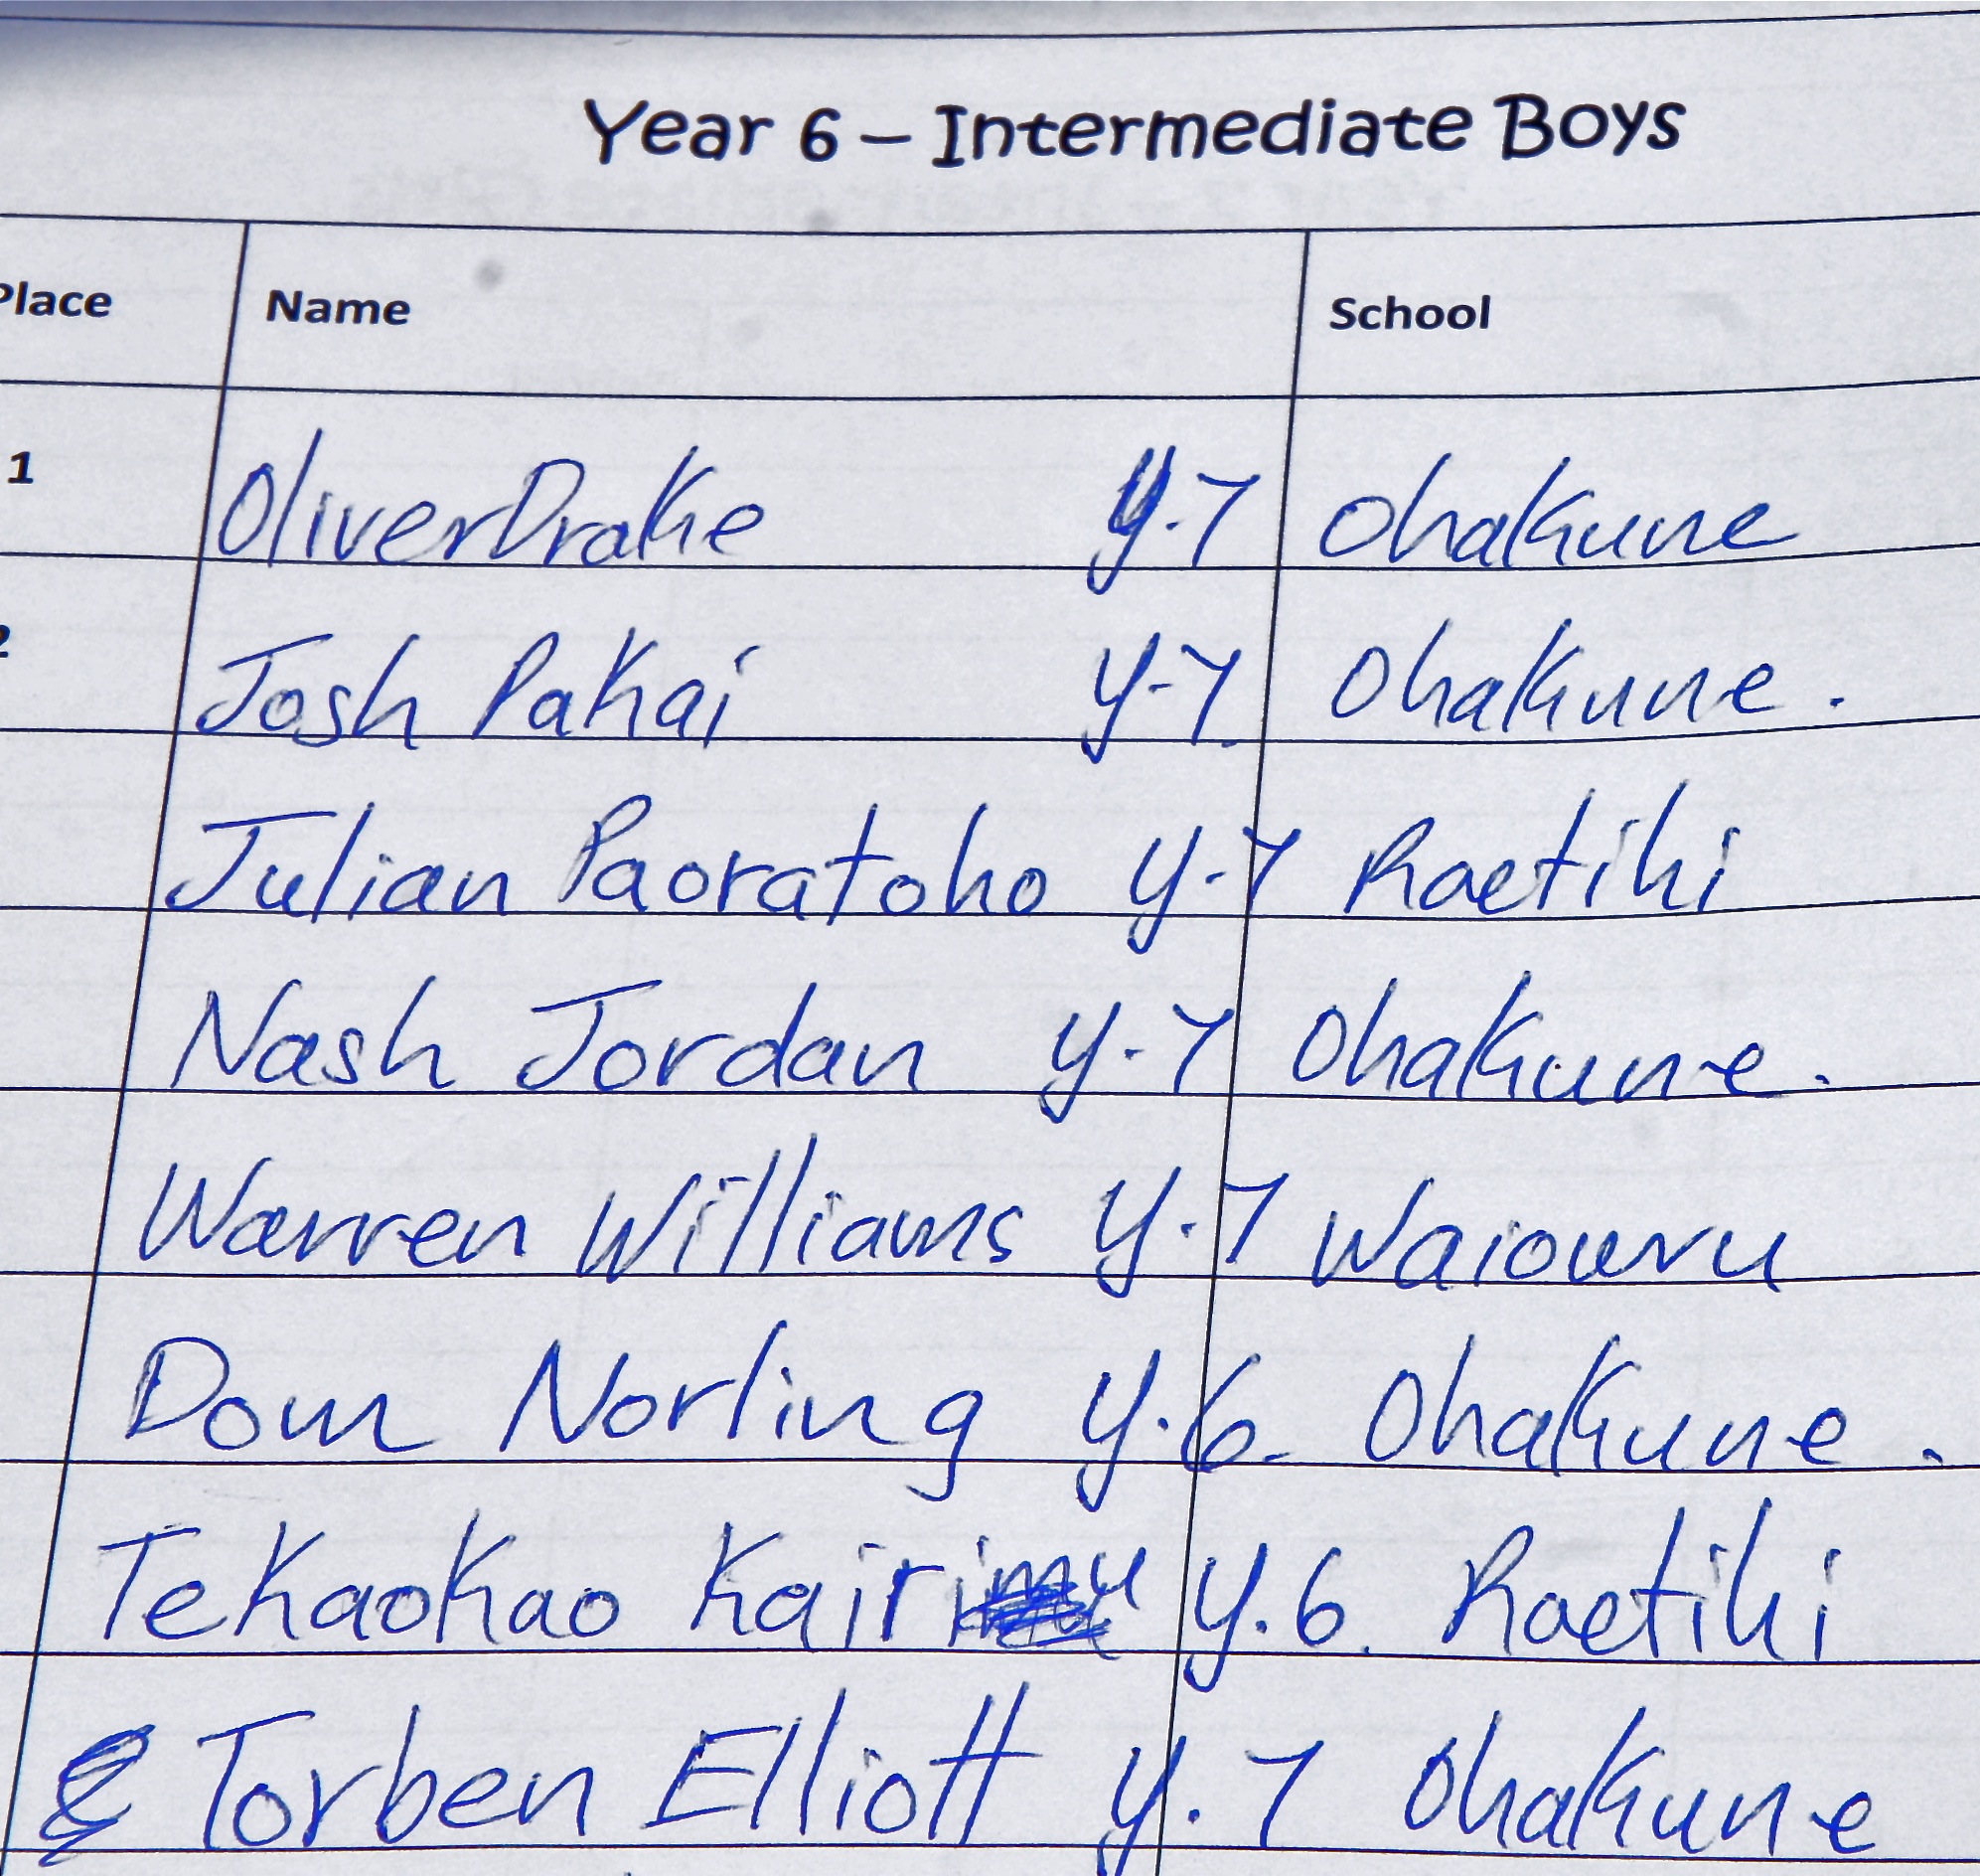 Year 6 – Intermediate Boys
Place Name School
1 Oliver Drake y.7 Ohakune
2 Josh Pakai y-7. Ohakune.
Julian Paoratoho y-7 Raetihi
Nash Jordan y.7 Ohakune.
Warren Williams y.7 Waiouru
Dom Norling y.6. Ohakune.
Tekaokao y.6. Raetihi
Torben Elliott y.7 Ohakune